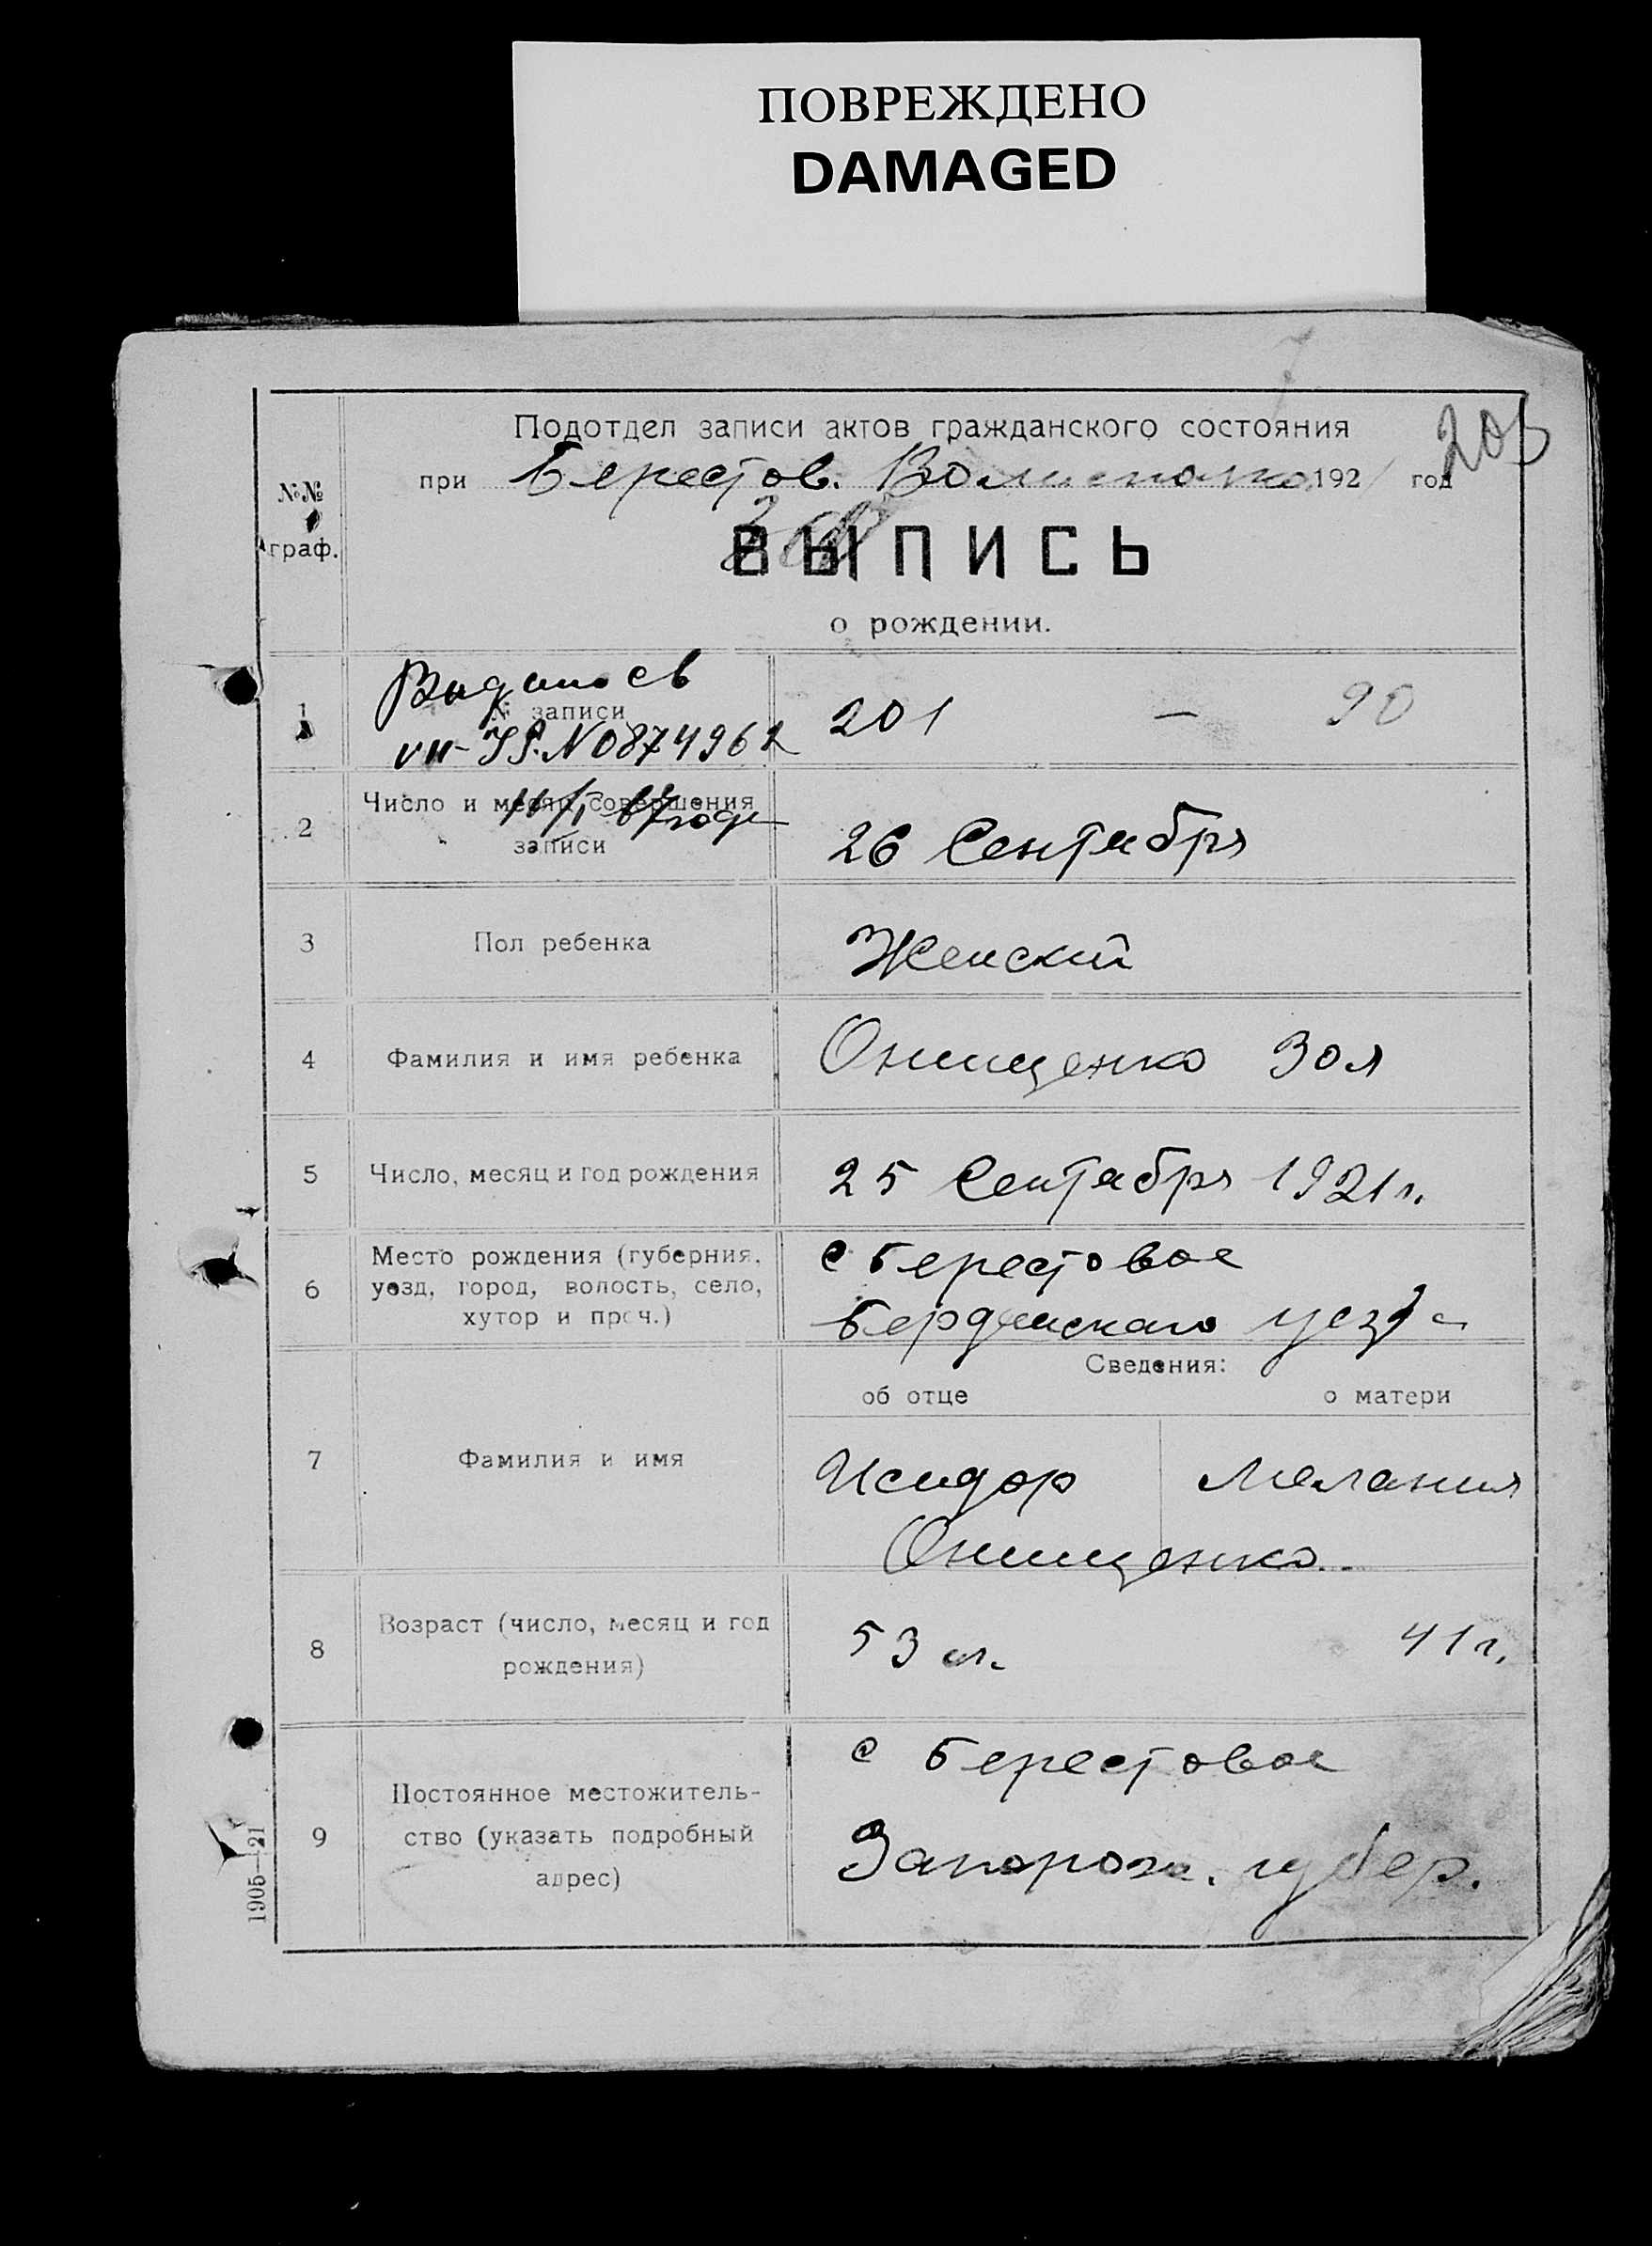 ПОВРЕЖДЕНО
DAMAGED
Подотдел записи актов гражданского состояния
при Берестов. Волисполко. 1921 год
203
№№ граф.
ВЫПИСЬ
о рождении.
1 № записи 201 — 90
св
VII-ЯР. N 0874962
2 Число и месяц совершения записи 26 Сентября
67 года
3 Пол ребенка Женский
4 Фамилия и имя ребенка Онищенко Зоя
5 Число, месяц и год рождения 25 Сентября 1921 г.
6 Место рождения (губерния, уезд, город, волость, село, хутор и проч.) с Берестовое
Бердянскаго уезда
Сведения:
об отце о матери
7 Фамилия и имя Исидор Мелания
Онищенко
8 Возраст (число, месяц и год рождения) 53 л. 41 г.
9 Постоянное местожительство (указать подробный адрес) с Берестовое
Запорож. губер.
1905—21